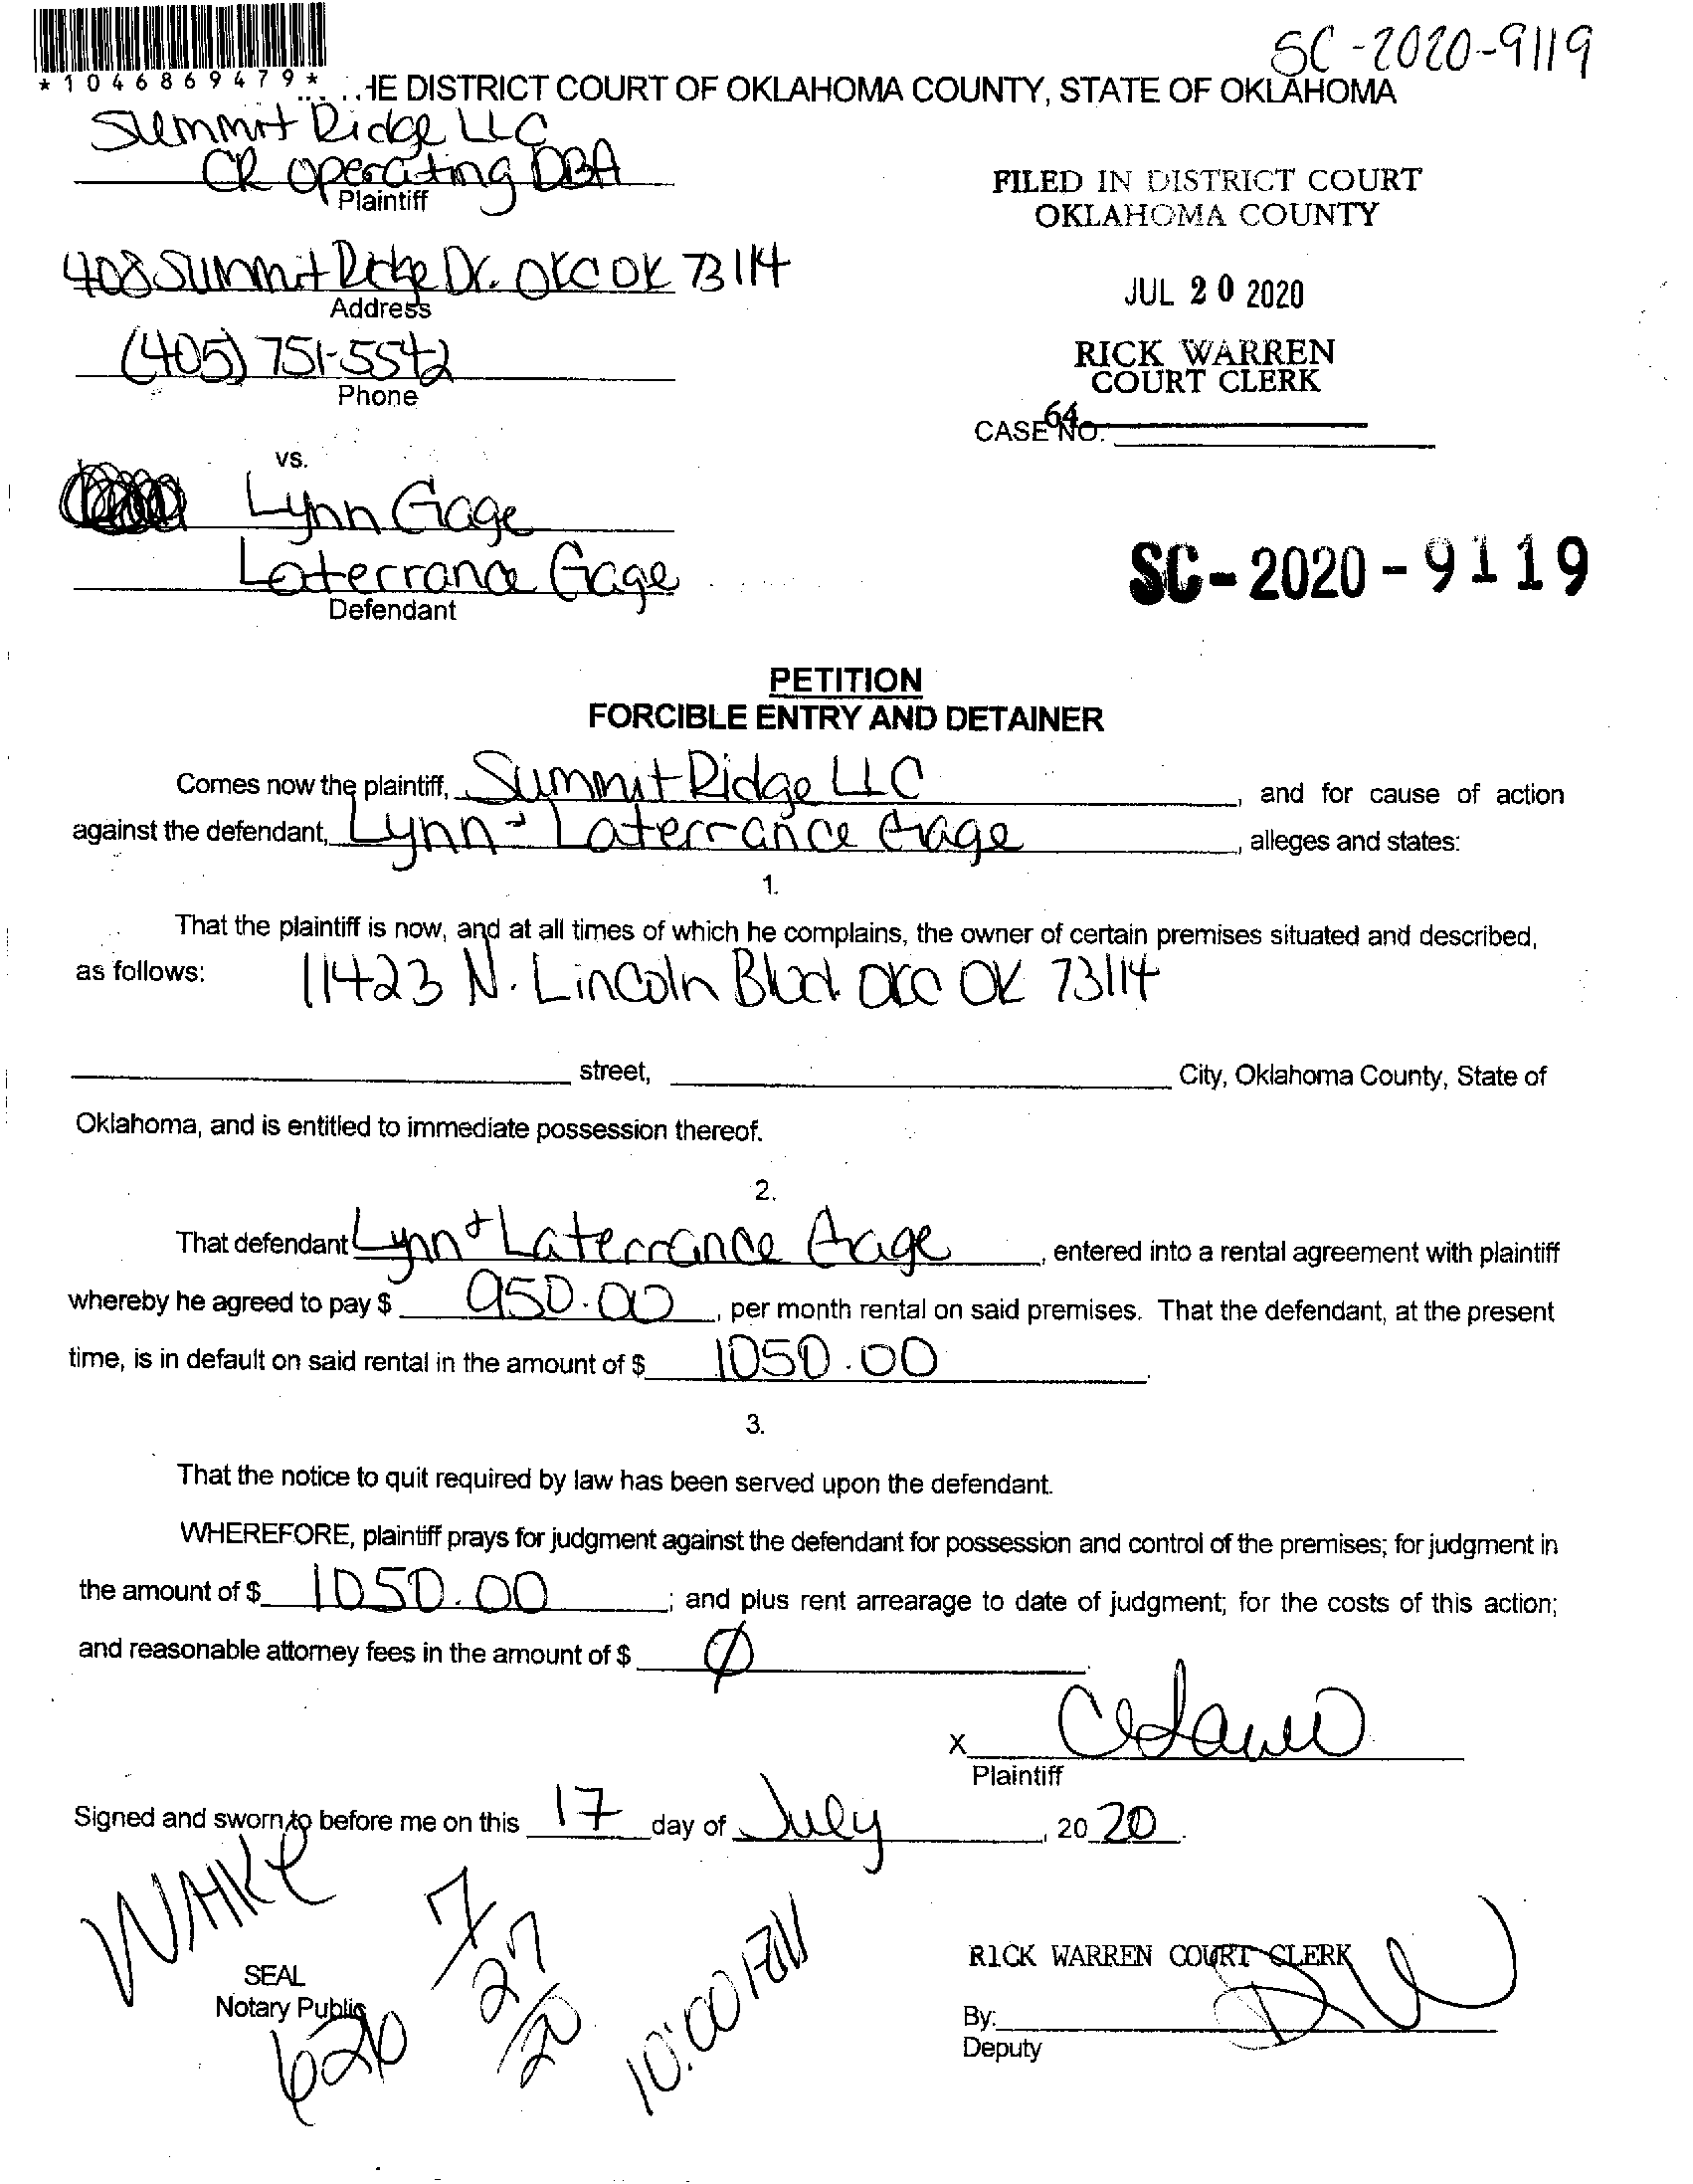 SC-2020-9119
*1046869479*
HE DISTRICT COURT OF OKLAHOMA COUNTY, STATE OF OKLAHOMA
Summit Ridge LLC
CR Operating DBA
Plaintiff
FILED IN DISTRICT COURT
OKLAHOMA COUNTY
408 Summit Ridge Dr. OKC OK 73114
Address
JUL 20 2020
(405) 751-5542
Phone
RICK WARREN
COURT CLERK
64
CASE NO.
vs.
Lynn Gage
Laterrance Gage
Defendant
SC-2020-9119
PETITION
FORCIBLE ENTRY AND DETAINER
Comes now the plaintiff, Summit Ridge LLC, and for cause of action
against the defendant, Lynn + Laterrance Gage, alleges and states:
1.
That the plaintiff is now, and at all times of which he complains, the owner of certain premises situated and described,
as follows: 11423 N. Lincoln Blvd. OKC OK 73114
street, City, Oklahoma County, State of
Oklahoma, and is entitled to immediate possession thereof.
2.
That defendant Lynn + Laterrance Gage, entered into a rental agreement with plaintiff
whereby he agreed to pay $ 950.00, per month rental on said premises. That the defendant, at the present
time, is in default on said rental in the amount of $ 1050.00.
3.
That the notice to quit required by law has been served upon the defendant.
WHEREFORE, plaintiff prays for judgment against the defendant for possession and control of the premises; for judgment in
the amount of $ 1050.00; and plus rent arrearage to date of judgment; for the costs of this action;
and reasonable attorney fees in the amount of $ Ø
X
Plaintiff
Signed and sworn to before me on this 17 day of July, 2020.
7/27/20
SEAL
Notary Public
620
RICK WARREN COURT CLERK
By:
Deputy